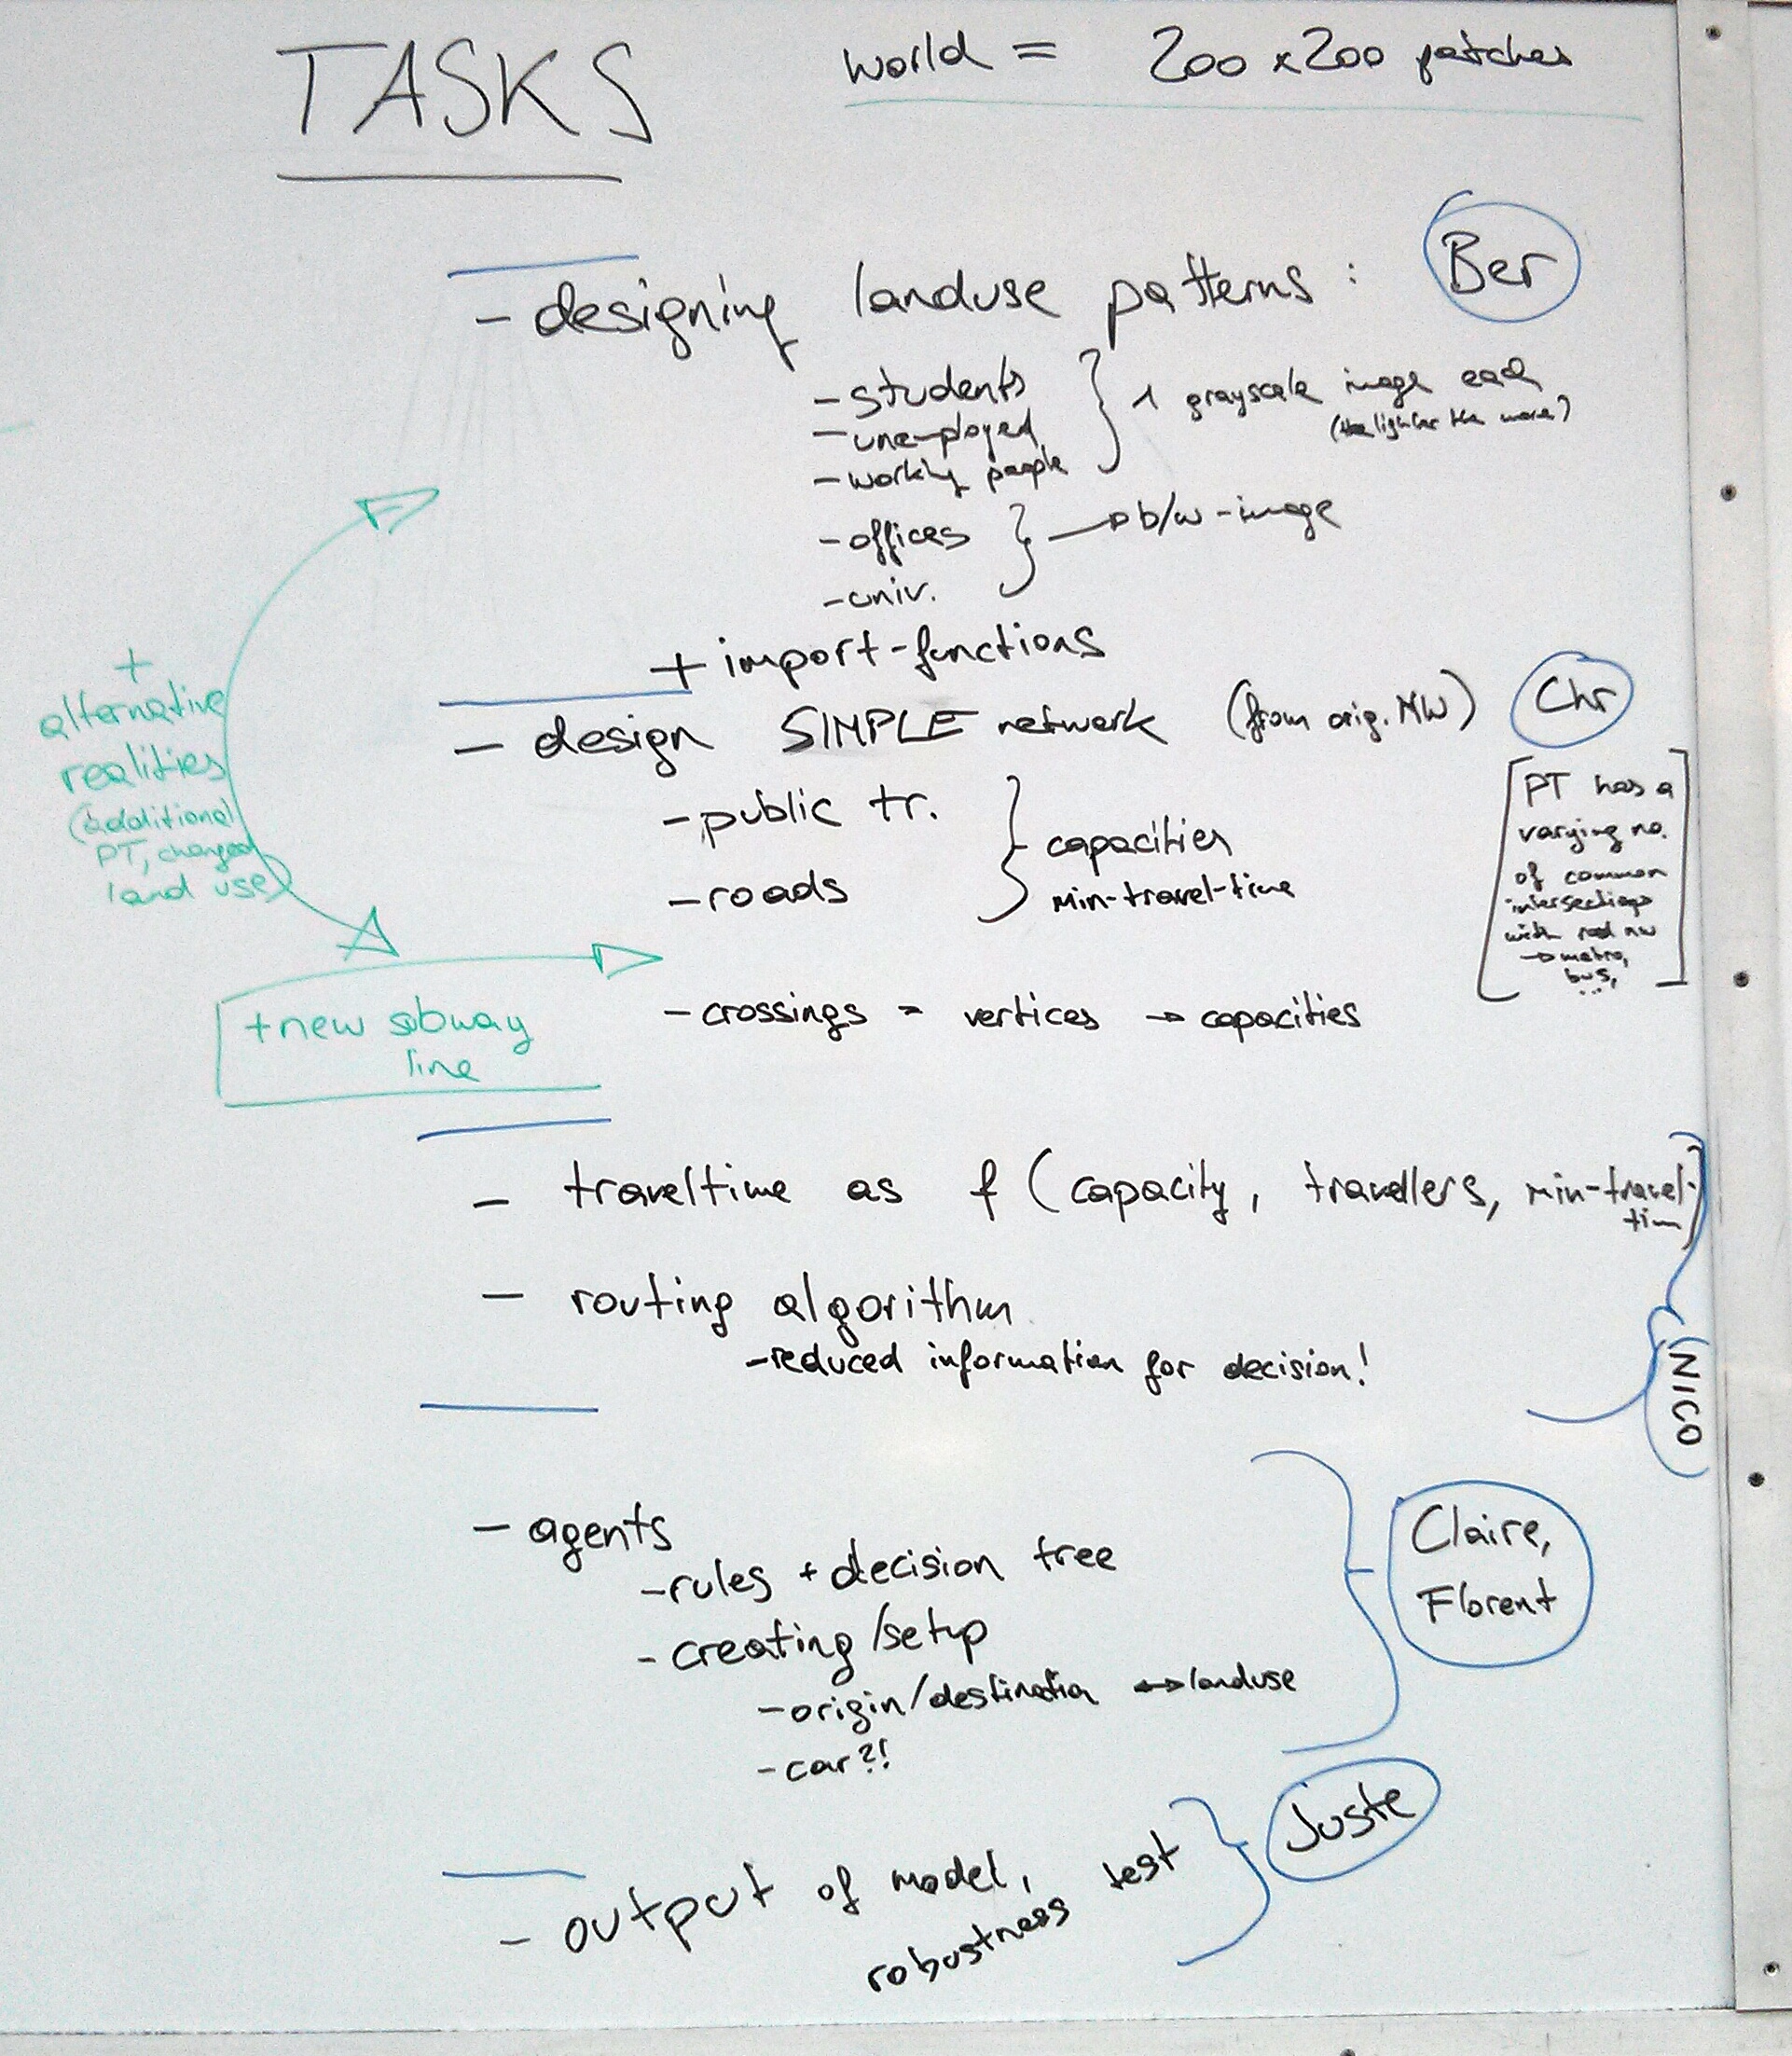 TASKS
world = 200 x 200 patches
- designing landuse patterns : Ber
- students
- unemployed
- working people
} 1 grayscale image each
(the lighter the more)
- offices
- univ.
} → b/w - image
+ import-functions
- design SIMPLE network (from orig. NW) Chr
- public tr.
- roads
} capacities
min-travel-time
[PT has a
varying no.
of common
intersections
with road nw
→ metro,
bus,
...]
- crossings = vertices → capacities
+
alternative
realities
(additional
PT, changed
land use)
+ new subway
line
- traveltime as f (capacity, travellers, min-travel-
time)
- routing algorithm
- reduced information for decision!
NICO
- agents
- rules + decision tree
- creating/setup
- origin/destination ↔ landuse
- car?!
Claire,
Florent
- output of model,
robustness test
Juste